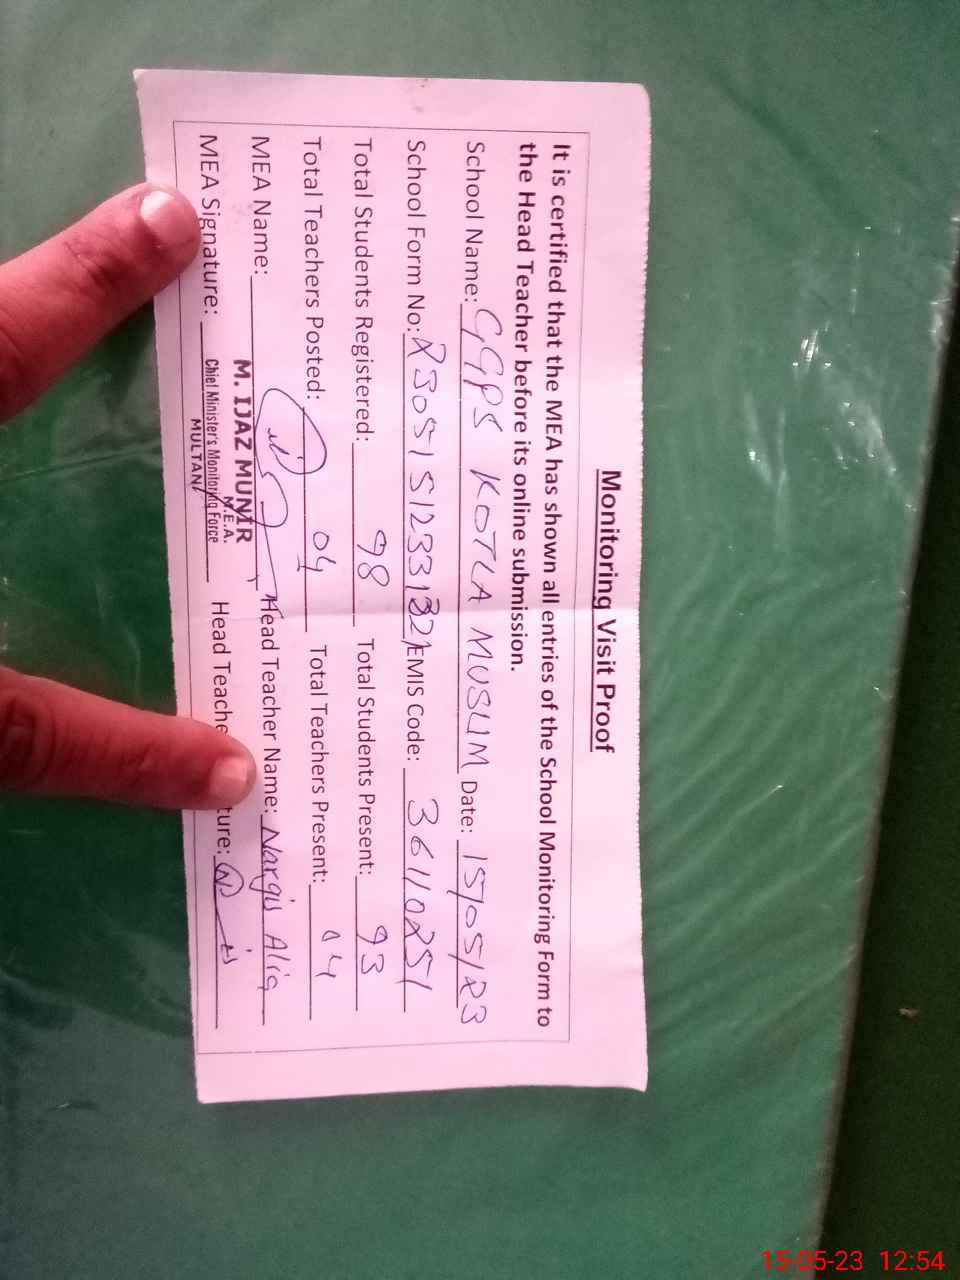 Monitoring Visit Proof
It is certified that the MEA has shown all entries of the School Monitoring Form to
the Head Teacher before its online submission.
School Name: GGPS KOTLA MUSLIM Date: 15/05/23
School Form No: EMIS Code: 36110251
Total Students Registered: 98 Total Students Present: 93
Total Teachers Posted: 04 Total Teachers Present: 04
MEA Name: Head Teacher Name: Nargis Alia
M. IJAZ MUNIR
M.E.A.
MEA Signature: Chief Minister's Monitoring Force Head Teacher
MULTAN
15-05-23 12:54